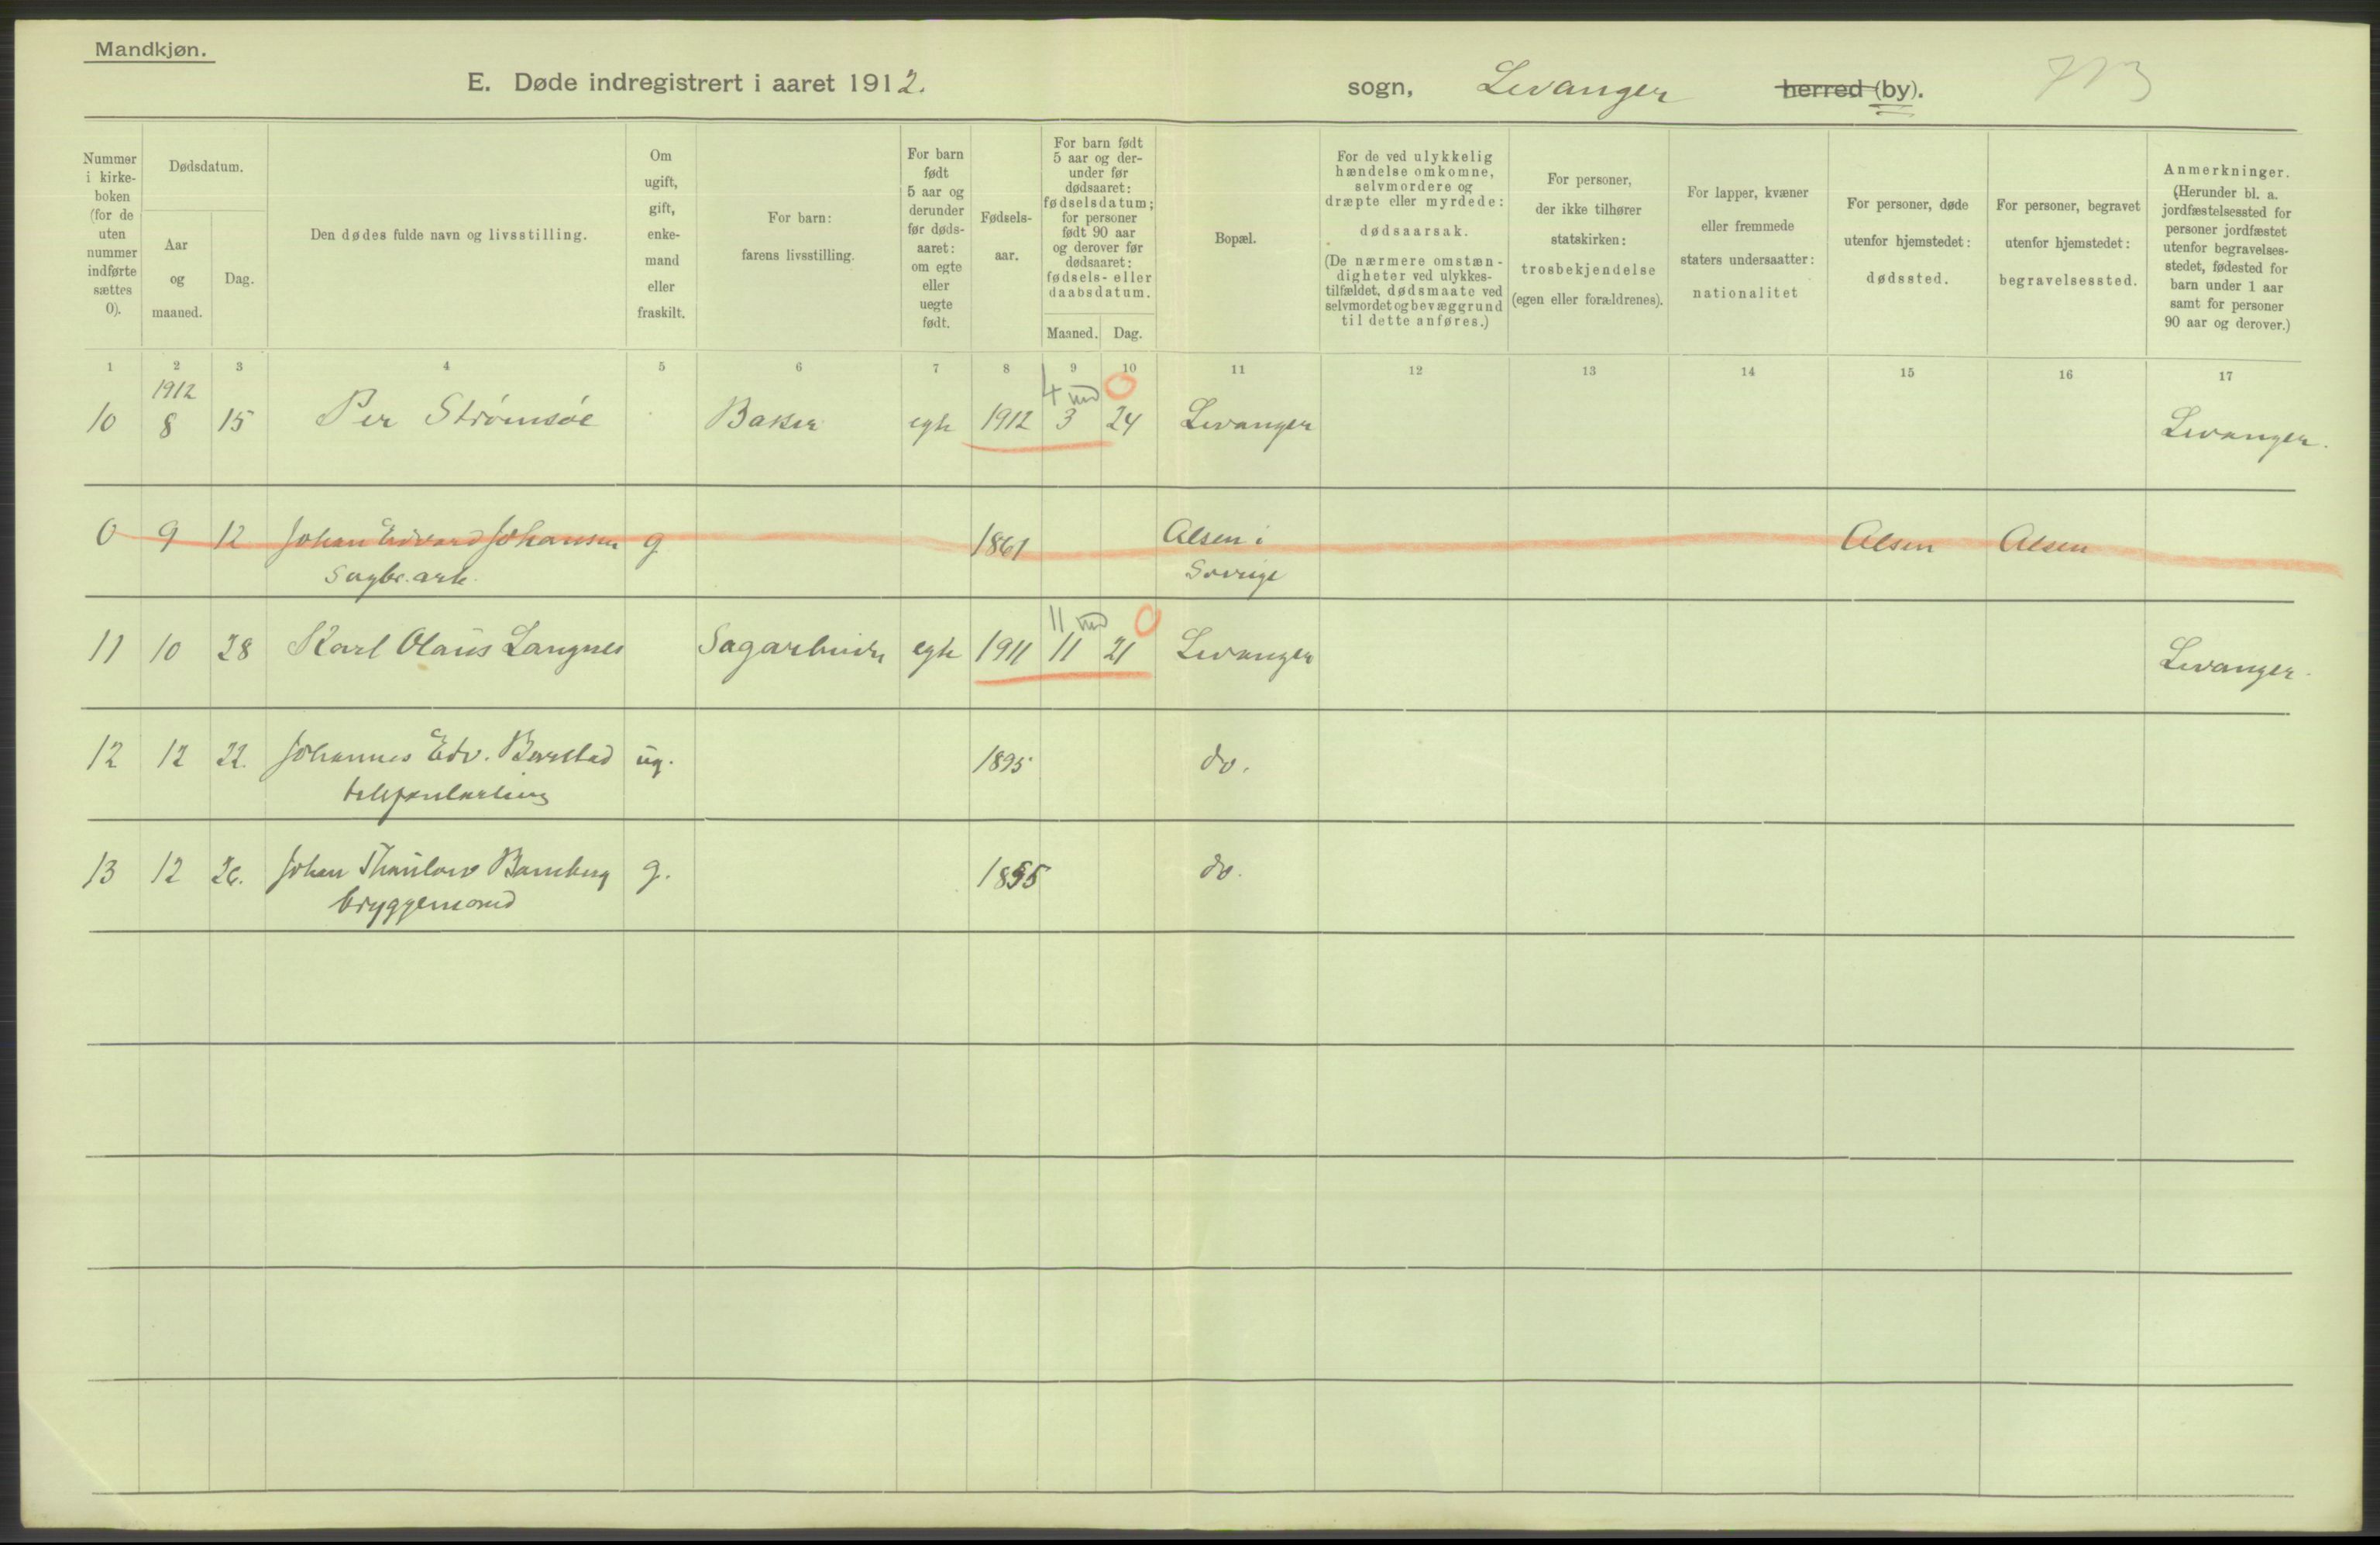 Mandkjøn.
E. Døde indregistrert i aaret 1912.
sogn, Levanger herred (by).
Nummer i kirkeboken (for de uten nummer indførte sættes 0).
Dødsdatum.
Aar og maaned.
Dag.
Den dødes fulde navn og livsstilling.
Om ugift, gift, enkemand eller fraskilt.
For barn: farens livsstilling.
For barn født 5 aar og derunder før dødsaaret: om egte eller uegte født.
Fødselsaar.
For barn født 5 aar og derunder før dødsaaret: fødselsdatum; for personer født 90 aar og derover før dødsaaret: fødsels- eller daabsdatum.
Maaned. Dag.
Bopæl.
For de ved ulykkelig hændelse omkomne, selvmordere og dræpte eller myrdede: dødsaarsak. (De nærmere omstændigheter ved ulykkestilfældet, dødsmaate ved selvmordet og bevæggrund til dette anføres.)
For personer, der ikke tilhører statskirken: trosbekjendelse (egen eller forældrenes).
For lapper, kvæner eller fremmede staters undersaatter: nationalitet
For personer, døde utenfor hjemstedet: dødssted.
For personer, begravet utenfor hjemstedet: begravelsessted.
Anmerkninger. (Herunder bl. a. jordfæstelsessted for personer jordfæstet utenfor begravelsesstedet, fødested for barn under 1 aar samt for personer 90 aar og derover.)
1 2 3 4 5 6 7 8 9 10 11 12 13 14 15 16 17
1912 4 md 0
10 8 15 Per Strømsøe Baker egte 1912 3 24 Levanger Levanger.
0 9 12 Johan Edvard Johansen g 1861 Alsen i Alsen Alsen
Sagbr. arb. Sverige
11 md 0
11 10 28 Karl Olaus Langnes Sagarbeider egte 1911 11 21 Levanger Levanger.
12 12 22. Johannes Edv. ug. 1895 do.
13 12 26. Johan Thaulow Bamberg g. 1855 do.
bryggemand